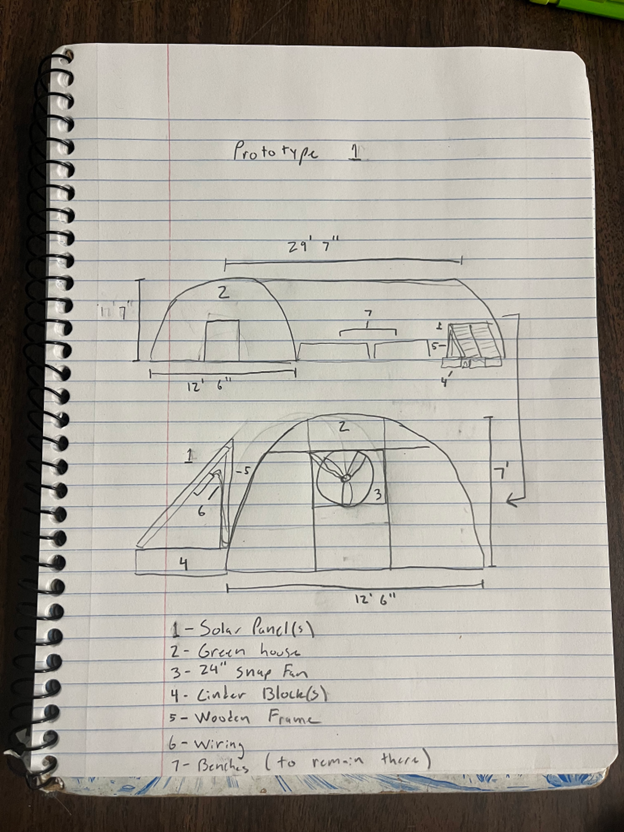 Prototype 1
29' 7"
2
7"
7
1
5-
12' 6"
4'
2
1
-5
6
3
7'
4
12' 6"
1 - Solar Panel(s)
2 - Green house
3 - 24" Snap Fan
4 - Cinder Block(s)
5 - Wooden Frame
6 - Wiring
7 - Benches (to remain there)